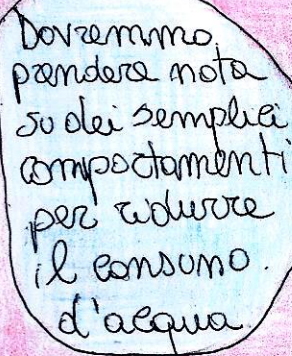 Dovremmo
prendere nota
su dei semplici
comportamenti
per ridurre
il consumo.
d'acqua.